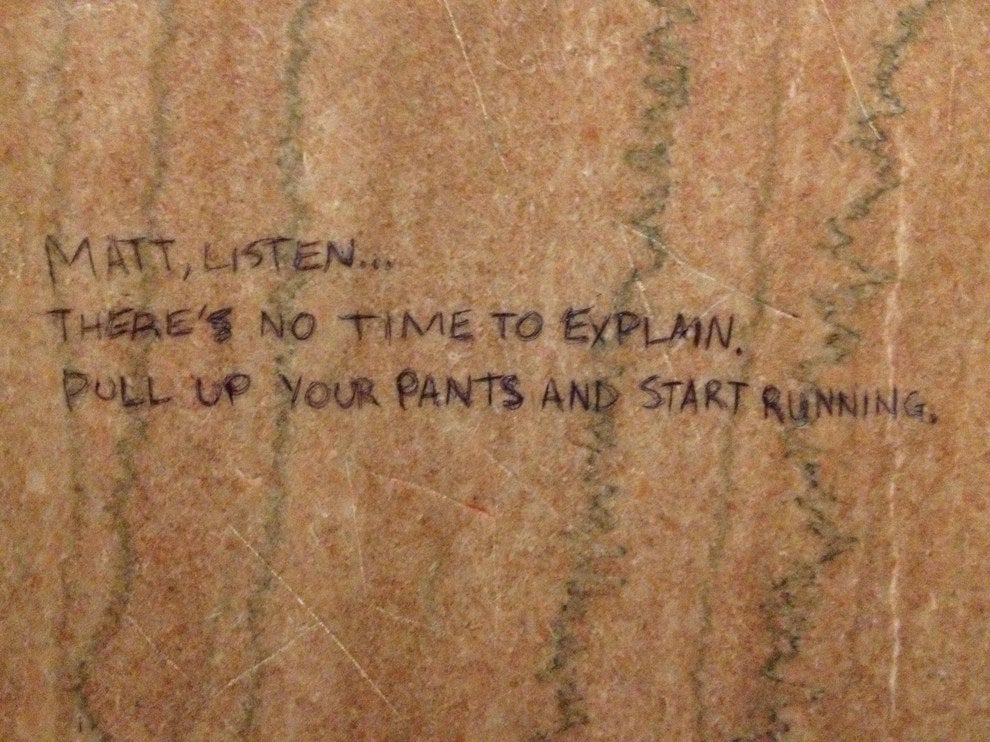 MATT, LISTEN...
THERE'S NO TIME TO EXPLAIN.
PULL UP YOUR PANTS AND START RUNNING.